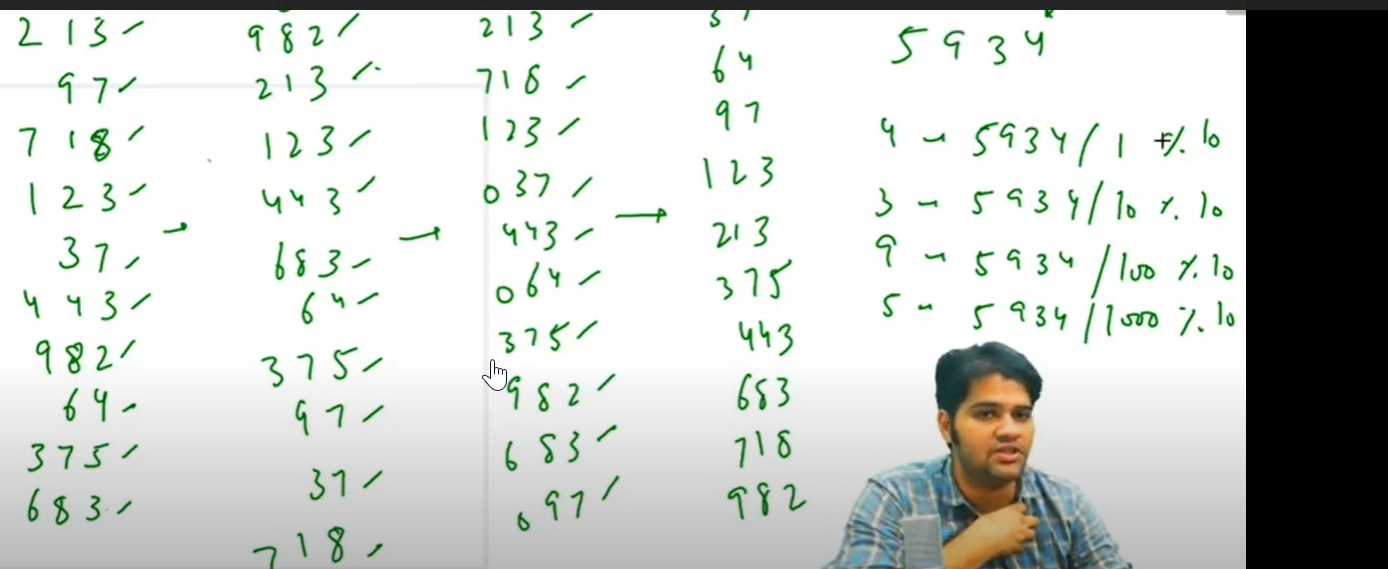 213
97
718
123
37
443
982
64
375
683
982
213
123
443
683
64
375
97
37
718
213
718
123
037
443
064
375
982
683
097
37
64
97
123
213
375
443
683
718
982
5934
4 - 5934/1 % 10
3 - 5934/10 % 10
9 - 5934/100 % 10
5 - 5934/1000 % 10